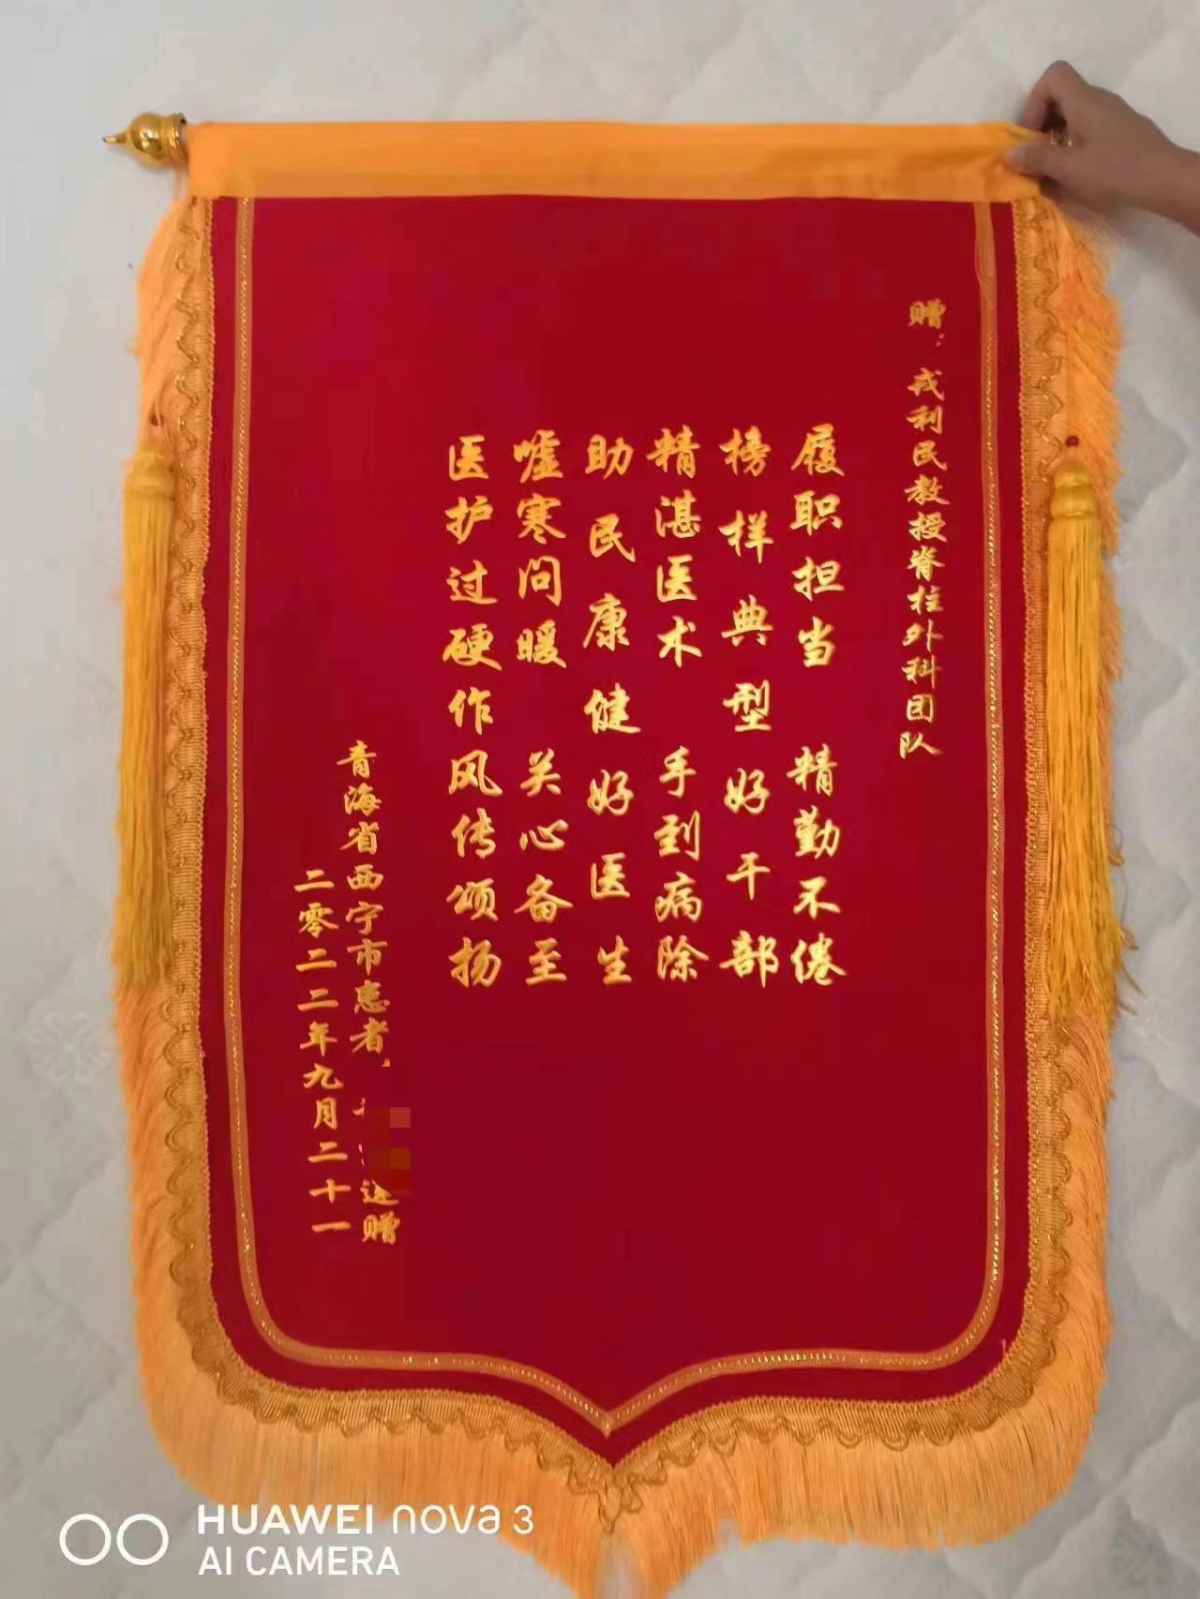 赠：戎利民教授脊柱外科团队
履职担当 精勤不倦
榜样典型好干部
精湛医术 手到病除
助民康健好医生
嘘寒问暖 关心备至
医护过硬作风传颂扬
青海省西宁市患者 送赠
二零二二年九月二十一
HUAWEI nova 3
AI CAMERA